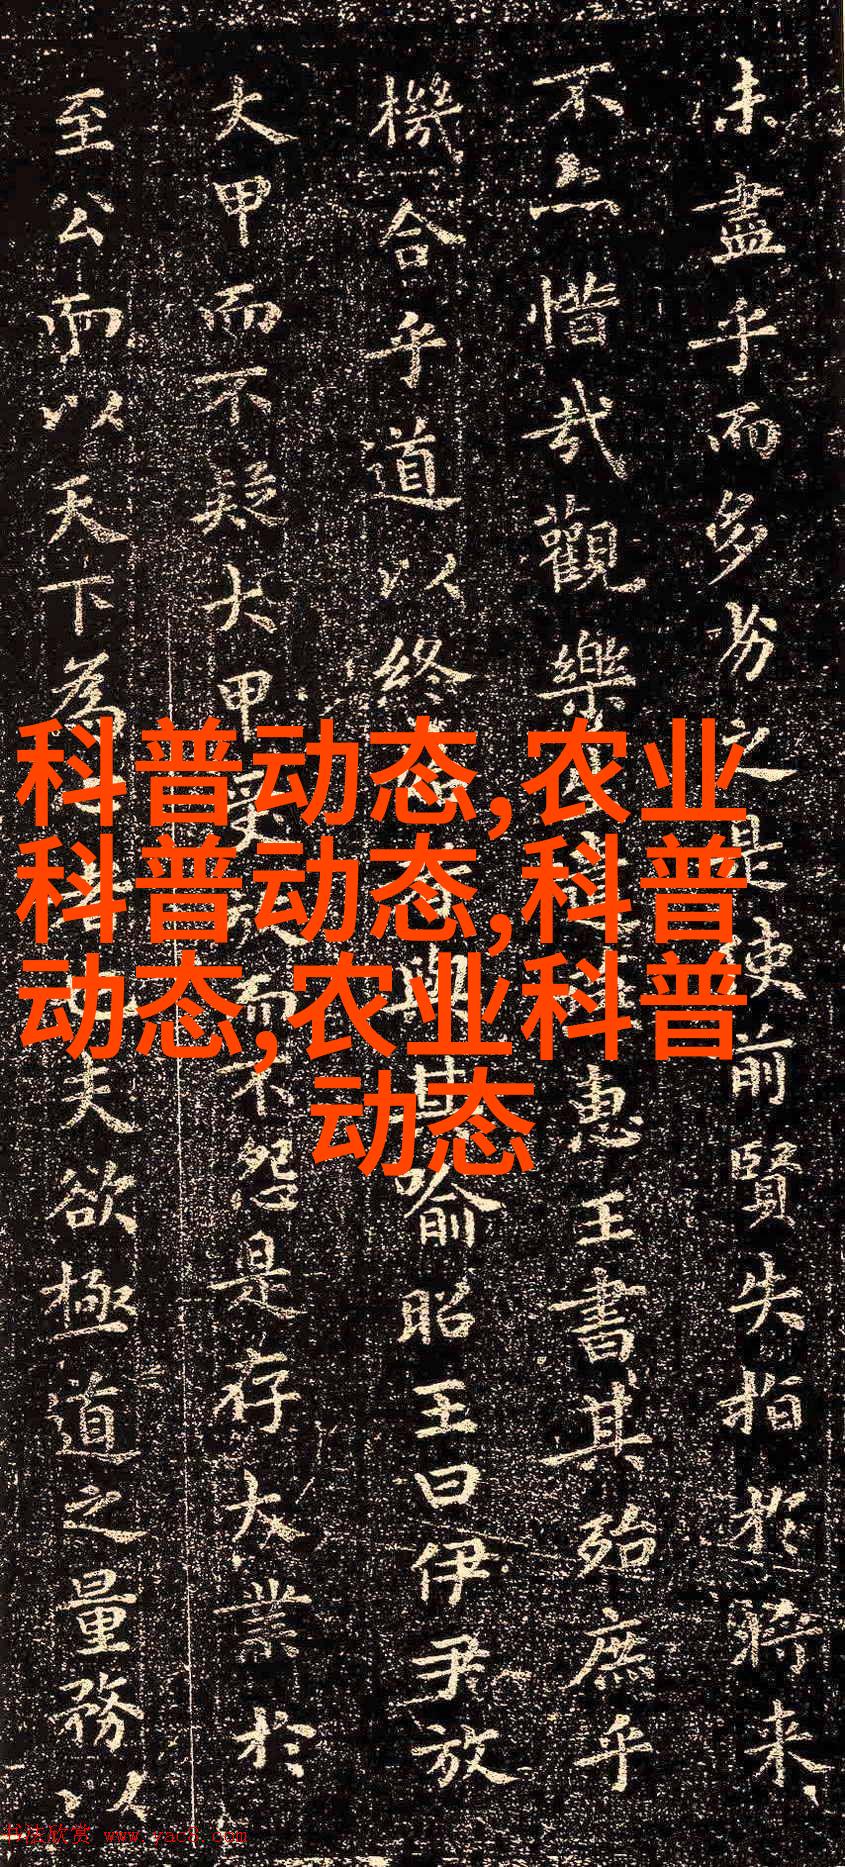 未盡乎而多劣之是使前賢失指於將来
不亦惜哉觀樂惠王書其殆庶乎
機合乎道以終與其喻昭王曰伊尹放
大甲而不疑大甲受而不怨是存大業於
至公而以天下為夫欲極道之量務以
科普动态,农业
科普动态,科普
动态,农业科普
动态
书法欣赏 www.yac8.com